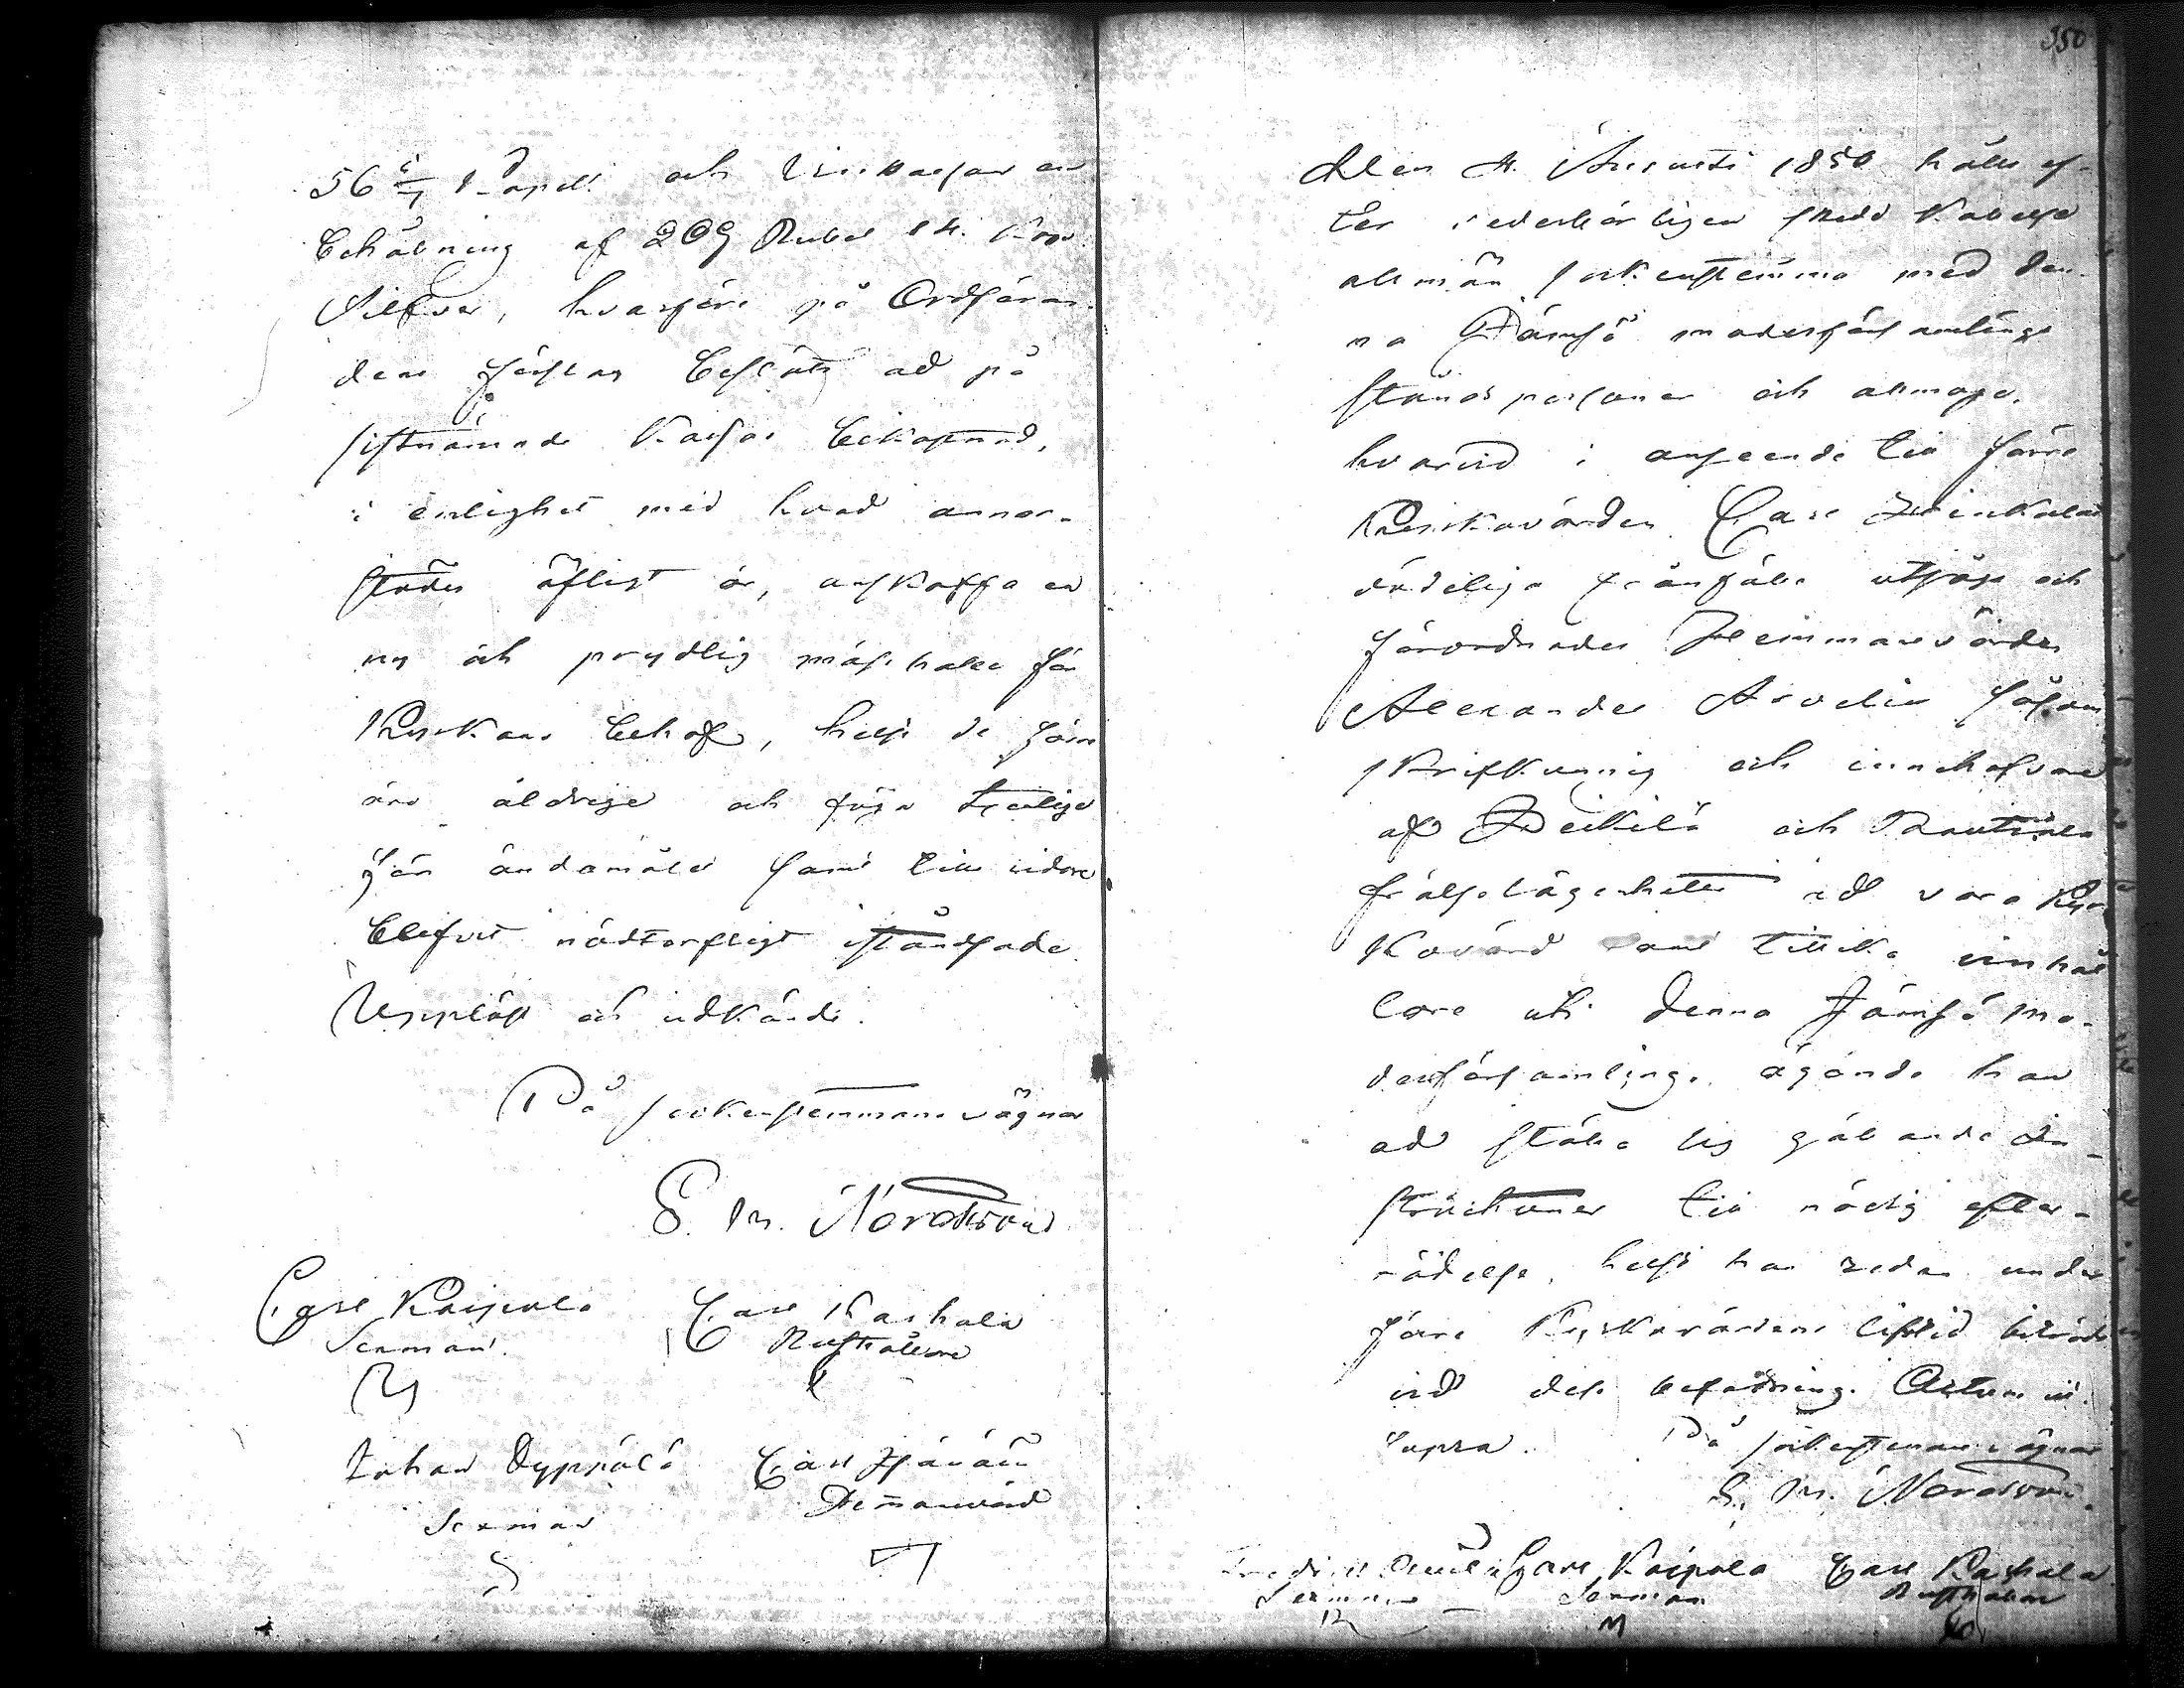 56 4/7 Kopek och Vinkassan en
behållning af 209 Rubel 84. Kop.
Silfver, hvarföre på Ordföran-
dens förslag beslöts ad på
sistnämnde Kassas bekostnad,
i enlighet med hvad annor-
städes öfligt är, anskaffa en
ny och prydlig mässhake för
Kyrkans behof, helst de förre
äro åldrige och föga tjenlige
för ändamålet samt till vidare
blefvet nödtorftigt iståndsade.
Uppläst och vidkändt.
På sockenstemmans vägnar
E. M. Nordstrand
Carl Kaipola Carl Kashala
Sexman. Rusthållare
Johan Ryppölä Carl
Sexman Hemansvärd
350
Den 4. Augusti 1850 hölls ef-
ter vederbörligen skedd Kallelse
allmän sockenstemma med den-
na Jämsä moderförsamlings
ståndspersoner och allmoge,
hvarvid i anseende till förre
Kyrkovärden Carl Heikkiläs
dödeliga frånfälle utsågs och
förordnades Hemmansvärden
Alexander Arvelin såsom
skrifkunnig och innehafvare
af Heikilä och
frälselägenheter ad vara Kyr-
kovärd samt tillika
lare uti denna Jämsä mo-
derförsamling, ägande han
ad ställa sig gällande In-
structioner till nödig efter-
rättelse, helst han redan under
förre Kyrkovärdens lifstid biträdt
vid dess befattning. Actum ut
supra. På sockenstemmans vägnar
E. M. Nordstrand.
Carl Kaipola Carl Kashala
Sexman Sexman Rusthållare